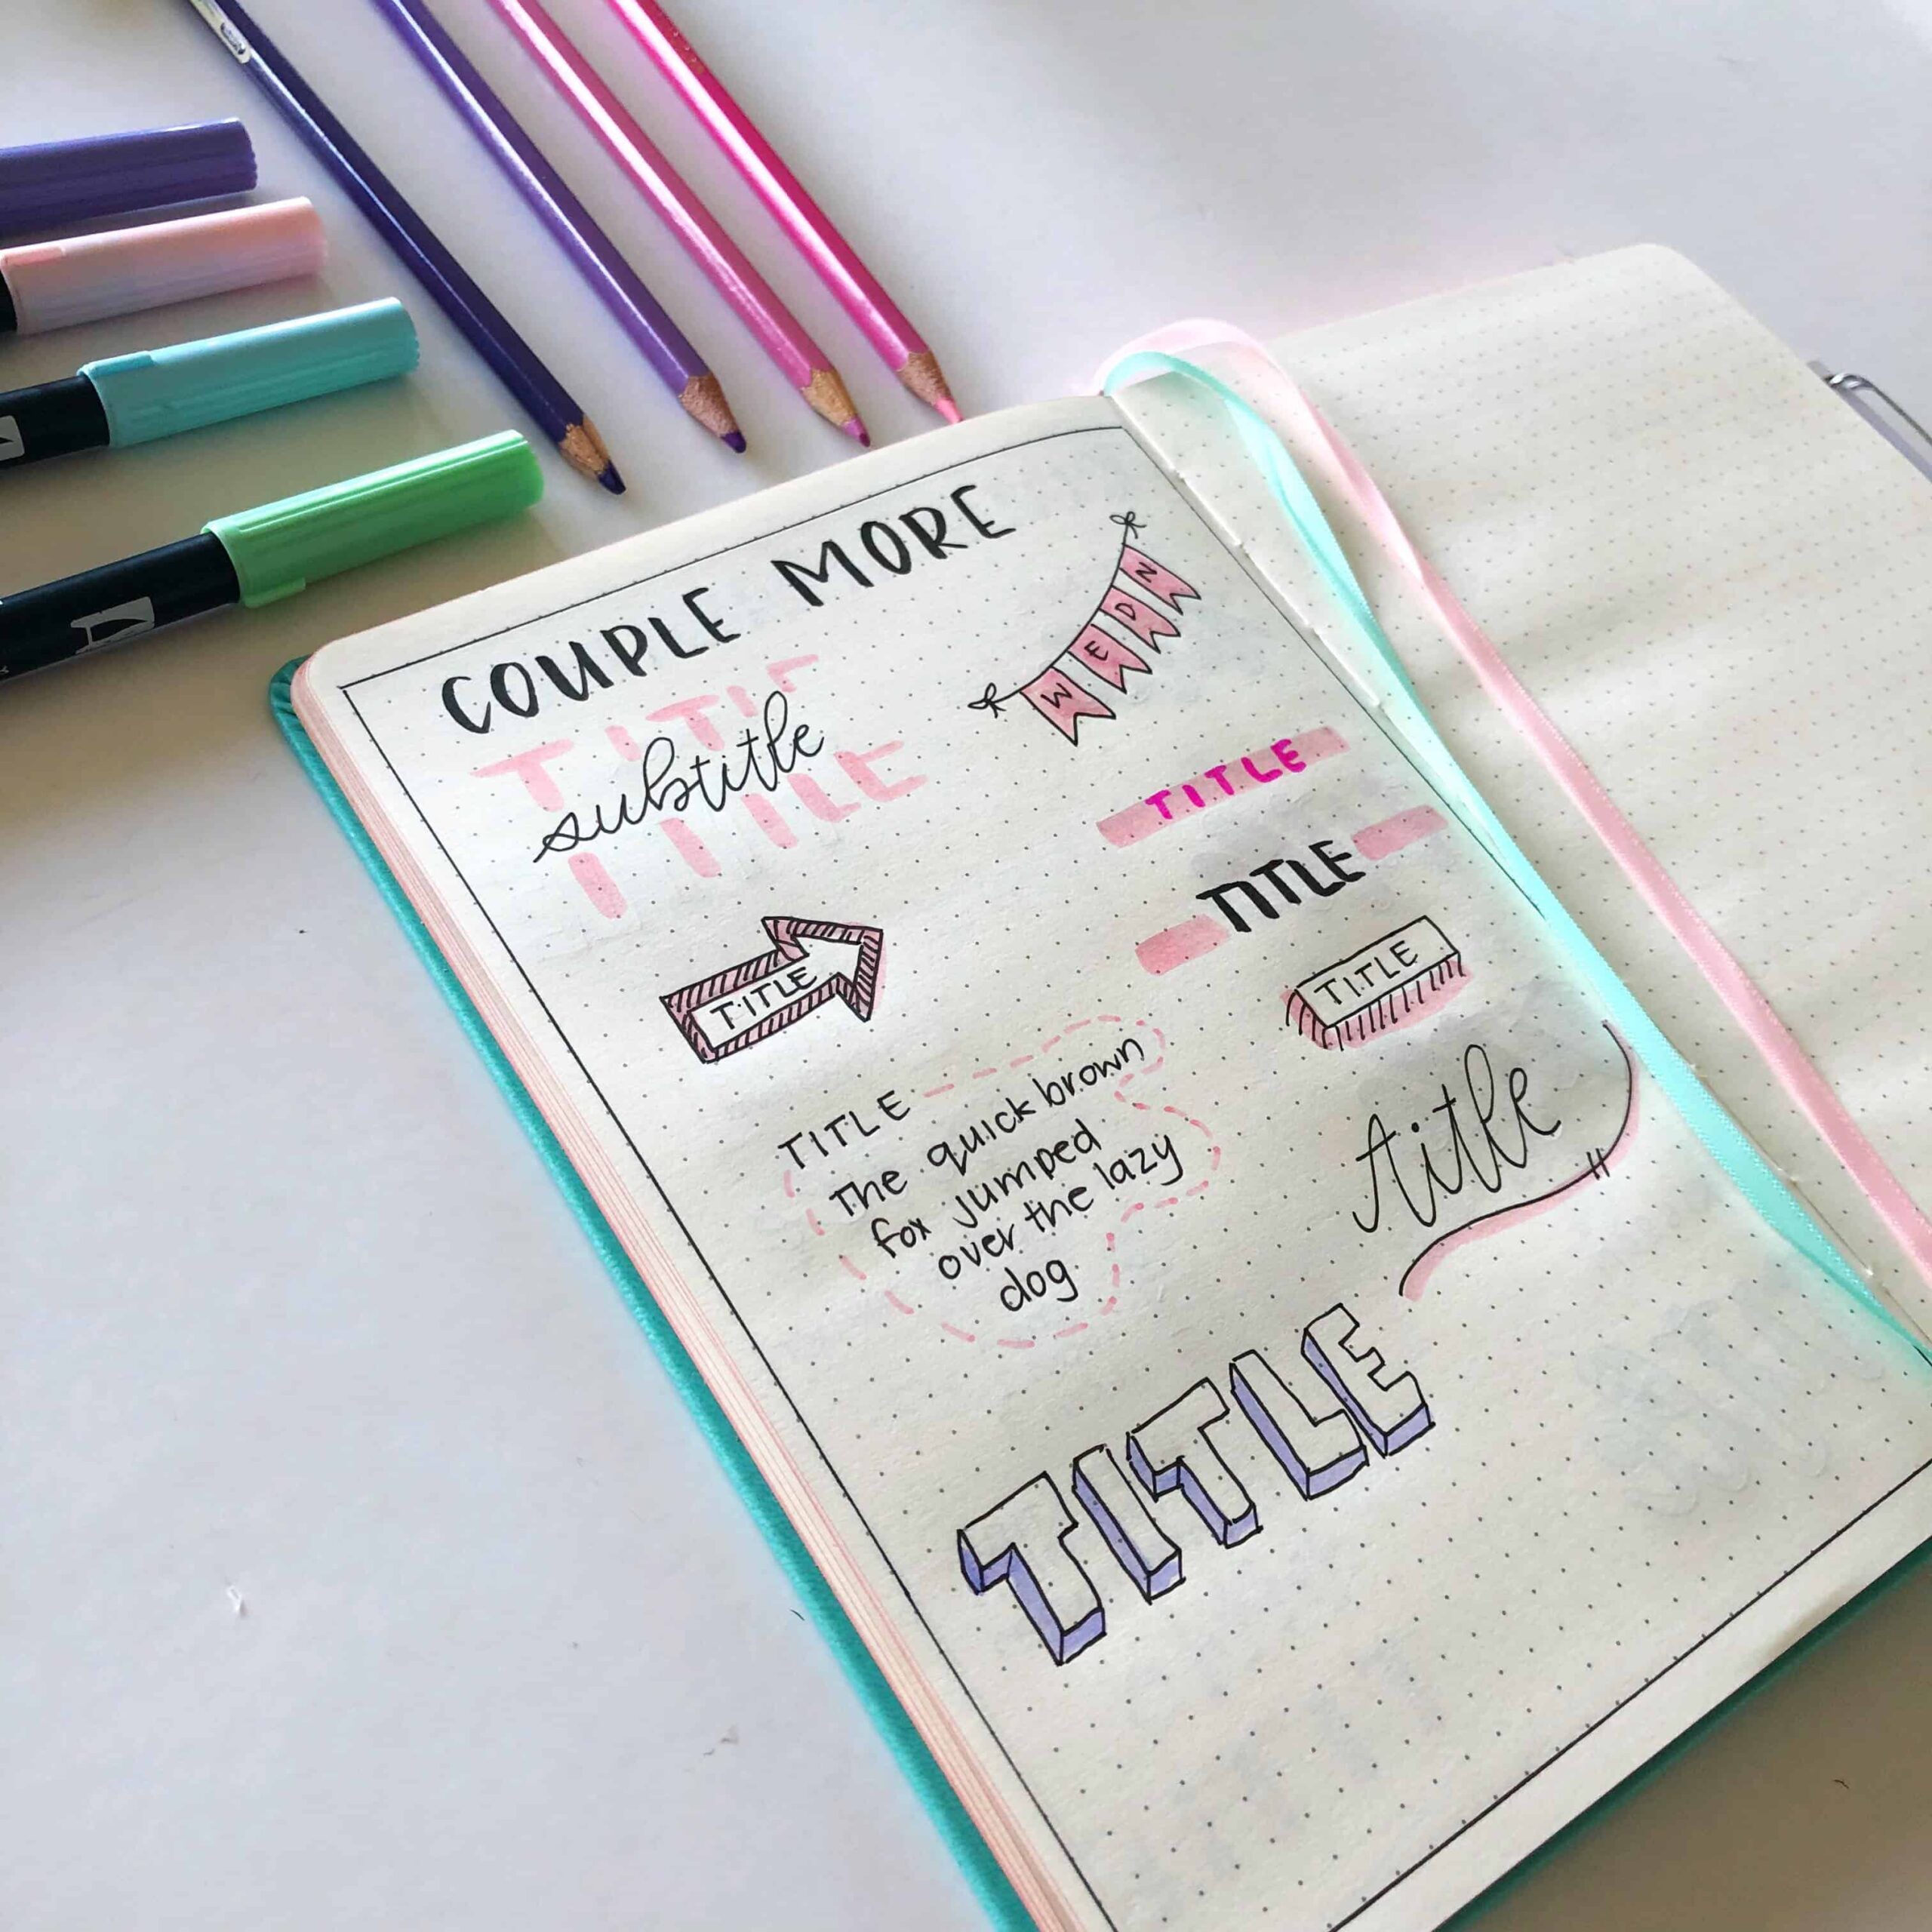 COUPLE MORE
WEDN
TITLE
subtitle
TITLE
TITLE
TITLE
TITLE
TITLE
The quick brown
fox jumped
over the lazy
dog
title
TITLE